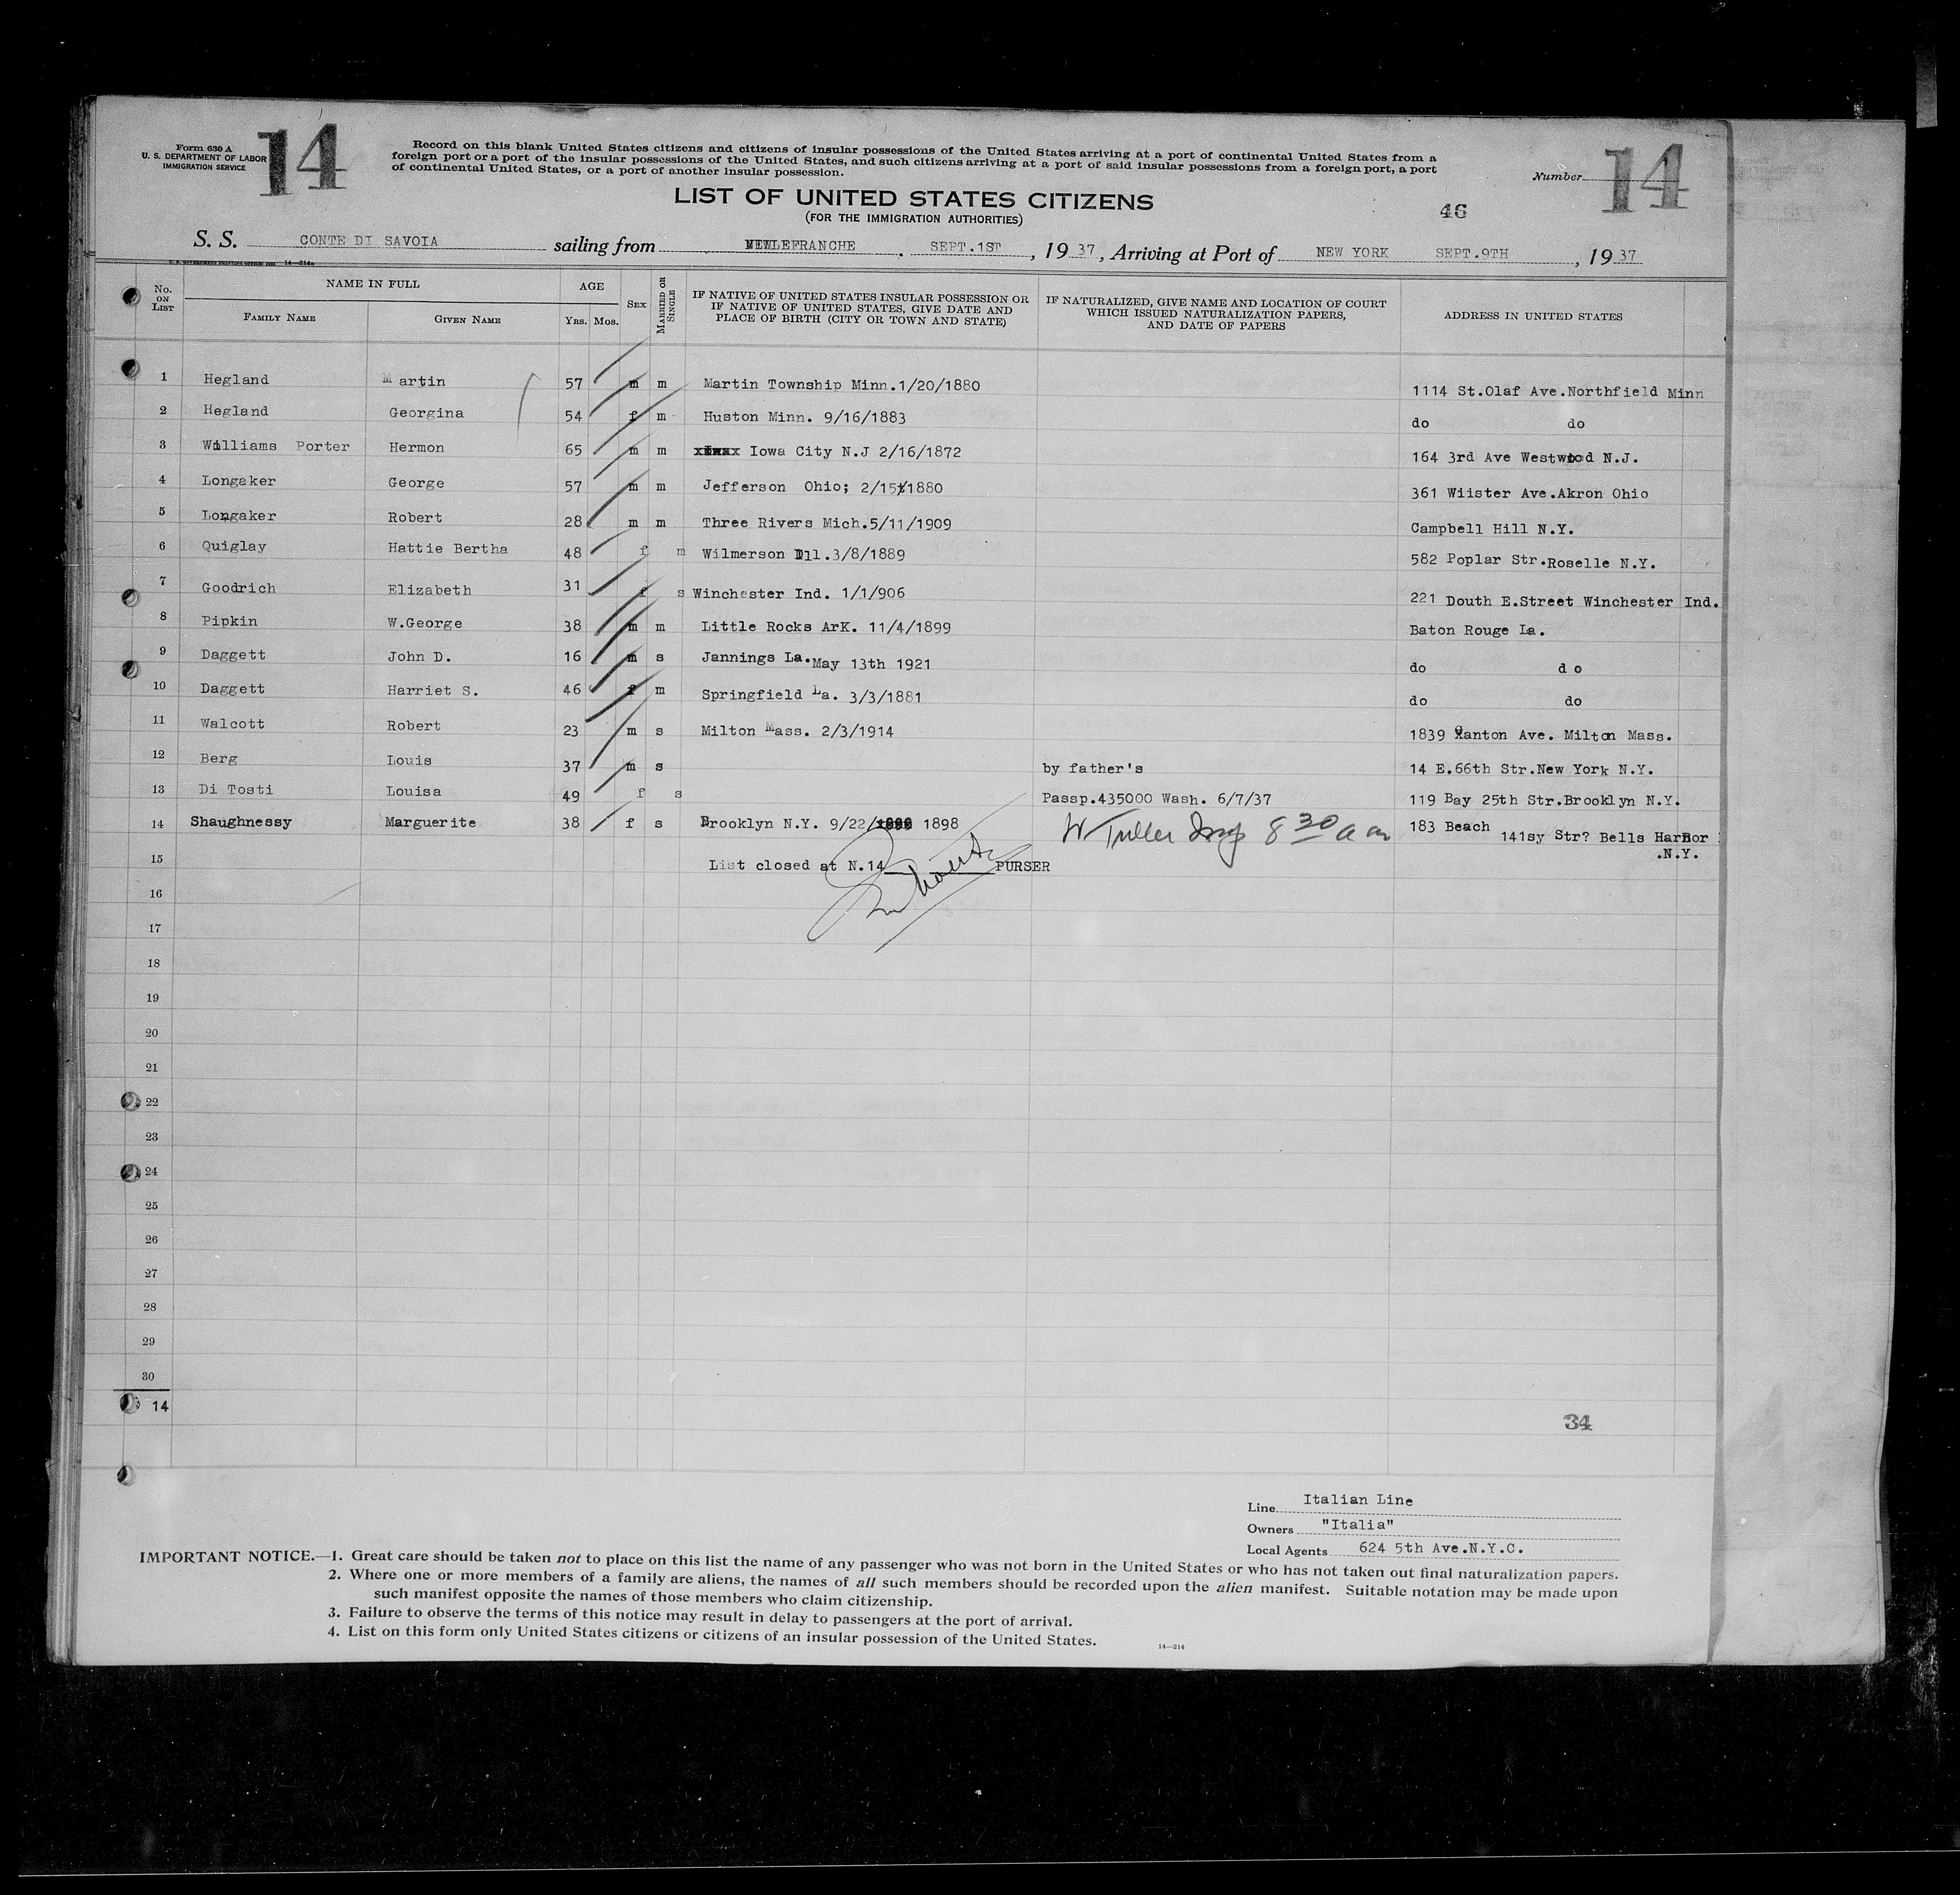 Form 630 A
U. S. DEPARTMENT OF LABOR
IMMIGRATION SERVICE
14
Record on this blank United States citizens and citizens of insular possessions of the United States arriving at a port of continental United States from a
foreign port or a port of the insular possessions of the United States, and such citizens arriving at a port of said insular possessions from a foreign port, a port
of continental United States, or a port of another insular possession.
Number 14
LIST OF UNITED STATES CITIZENS
(FOR THE IMMIGRATION AUTHORITIES)
46
S. S. CONTE DI SAVOIA sailing from VILLEFRANCHE. SEPT.1ST, 1937, Arriving at Port of NEW YORK SEPT.9TH, 1937
No. ON LIST
NAME IN FULL
FAMILY NAME
GIVEN NAME
AGE
YRS. MOS.
SEX
MARRIED OR SINGLE
IF NATIVE OF UNITED STATES INSULAR POSSESSION OR
IF NATIVE OF UNITED STATES, GIVE DATE AND
PLACE OF BIRTH (CITY OR TOWN AND STATE)
IF NATURALIZED, GIVE NAME AND LOCATION OF COURT
WHICH ISSUED NATURALIZATION PAPERS,
AND DATE OF PAPERS
ADDRESS IN UNITED STATES
1 Hegland Martin 57 m m Martin Township Minn.1/20/1880 1114 St.Olaf Ave.Northfield Minn
2 Hegland Georgina 54 f m Huston Minn. 9/16/1883 do do
3 Williams Porter Hermon 65 m m Iowa City N.J 2/16/1872 164 3rd Ave Westwood N.J.
4 Longaker George 57 m m Jefferson Ohio; 2/15/1880 361 Wiister Ave.Akron Ohio
5 Longaker Robert 28 m m Three Rivers Mich.5/11/1909 Campbell Hill N.Y.
6 Quiglay Hattie Bertha 48 f m Wilmerson Ill.3/8/1889 582 Poplar Str.Roselle N.Y.
7 Goodrich Elizabeth 31 f s Winchester Ind. 1/1/906 221 Douth E.Street Winchester Ind.
8 Pipkin W.George 38 m m Little Rocks ArK. 11/4/1899 Baton Rouge La.
9 Daggett John D. 16 m s Jannings La.May 13th 1921 do d o
10 Daggett Harriet S. 46 f m Springfield La. 3/3/1881 do do
11 Walcott Robert 23 m s Milton Mass. 2/3/1914 1839 Canton Ave. Milton Mass.
12 Berg Louis 37 m s by father's 14 E.66th Str.New York N.Y.
13 Di Tosti Louisa 49 f s Passp.435000 Wash. 6/7/37 119 Bay 25th Str.Brooklyn N.Y.
14 Shaughnessy Marguerite 38 f s Brooklyn N.Y. 9/22/ 1898 W Tuller Insp 8 30 a m 183 Beach 141sy Str? Bells Harbor
.N.Y.
15 List closed at N.14 PURSER
16
17
18
19
20
21
22
23
24
25
26
27
28
29
30
14
34
Line Italian Line
Owners "Italia"
Local Agents 624 5th Ave.N.Y.C.
IMPORTANT NOTICE.—1. Great care should be taken not to place on this list the name of any passenger who was not born in the United States or who has not taken out final naturalization papers.
2. Where one or more members of a family are aliens, the names of all such members should be recorded upon the alien manifest. Suitable notation may be made upon
such manifest opposite the names of those members who claim citizenship.
3. Failure to observe the terms of this notice may result in delay to passengers at the port of arrival.
4. List on this form only United States citizens or citizens of an insular possession of the United States.
14—214